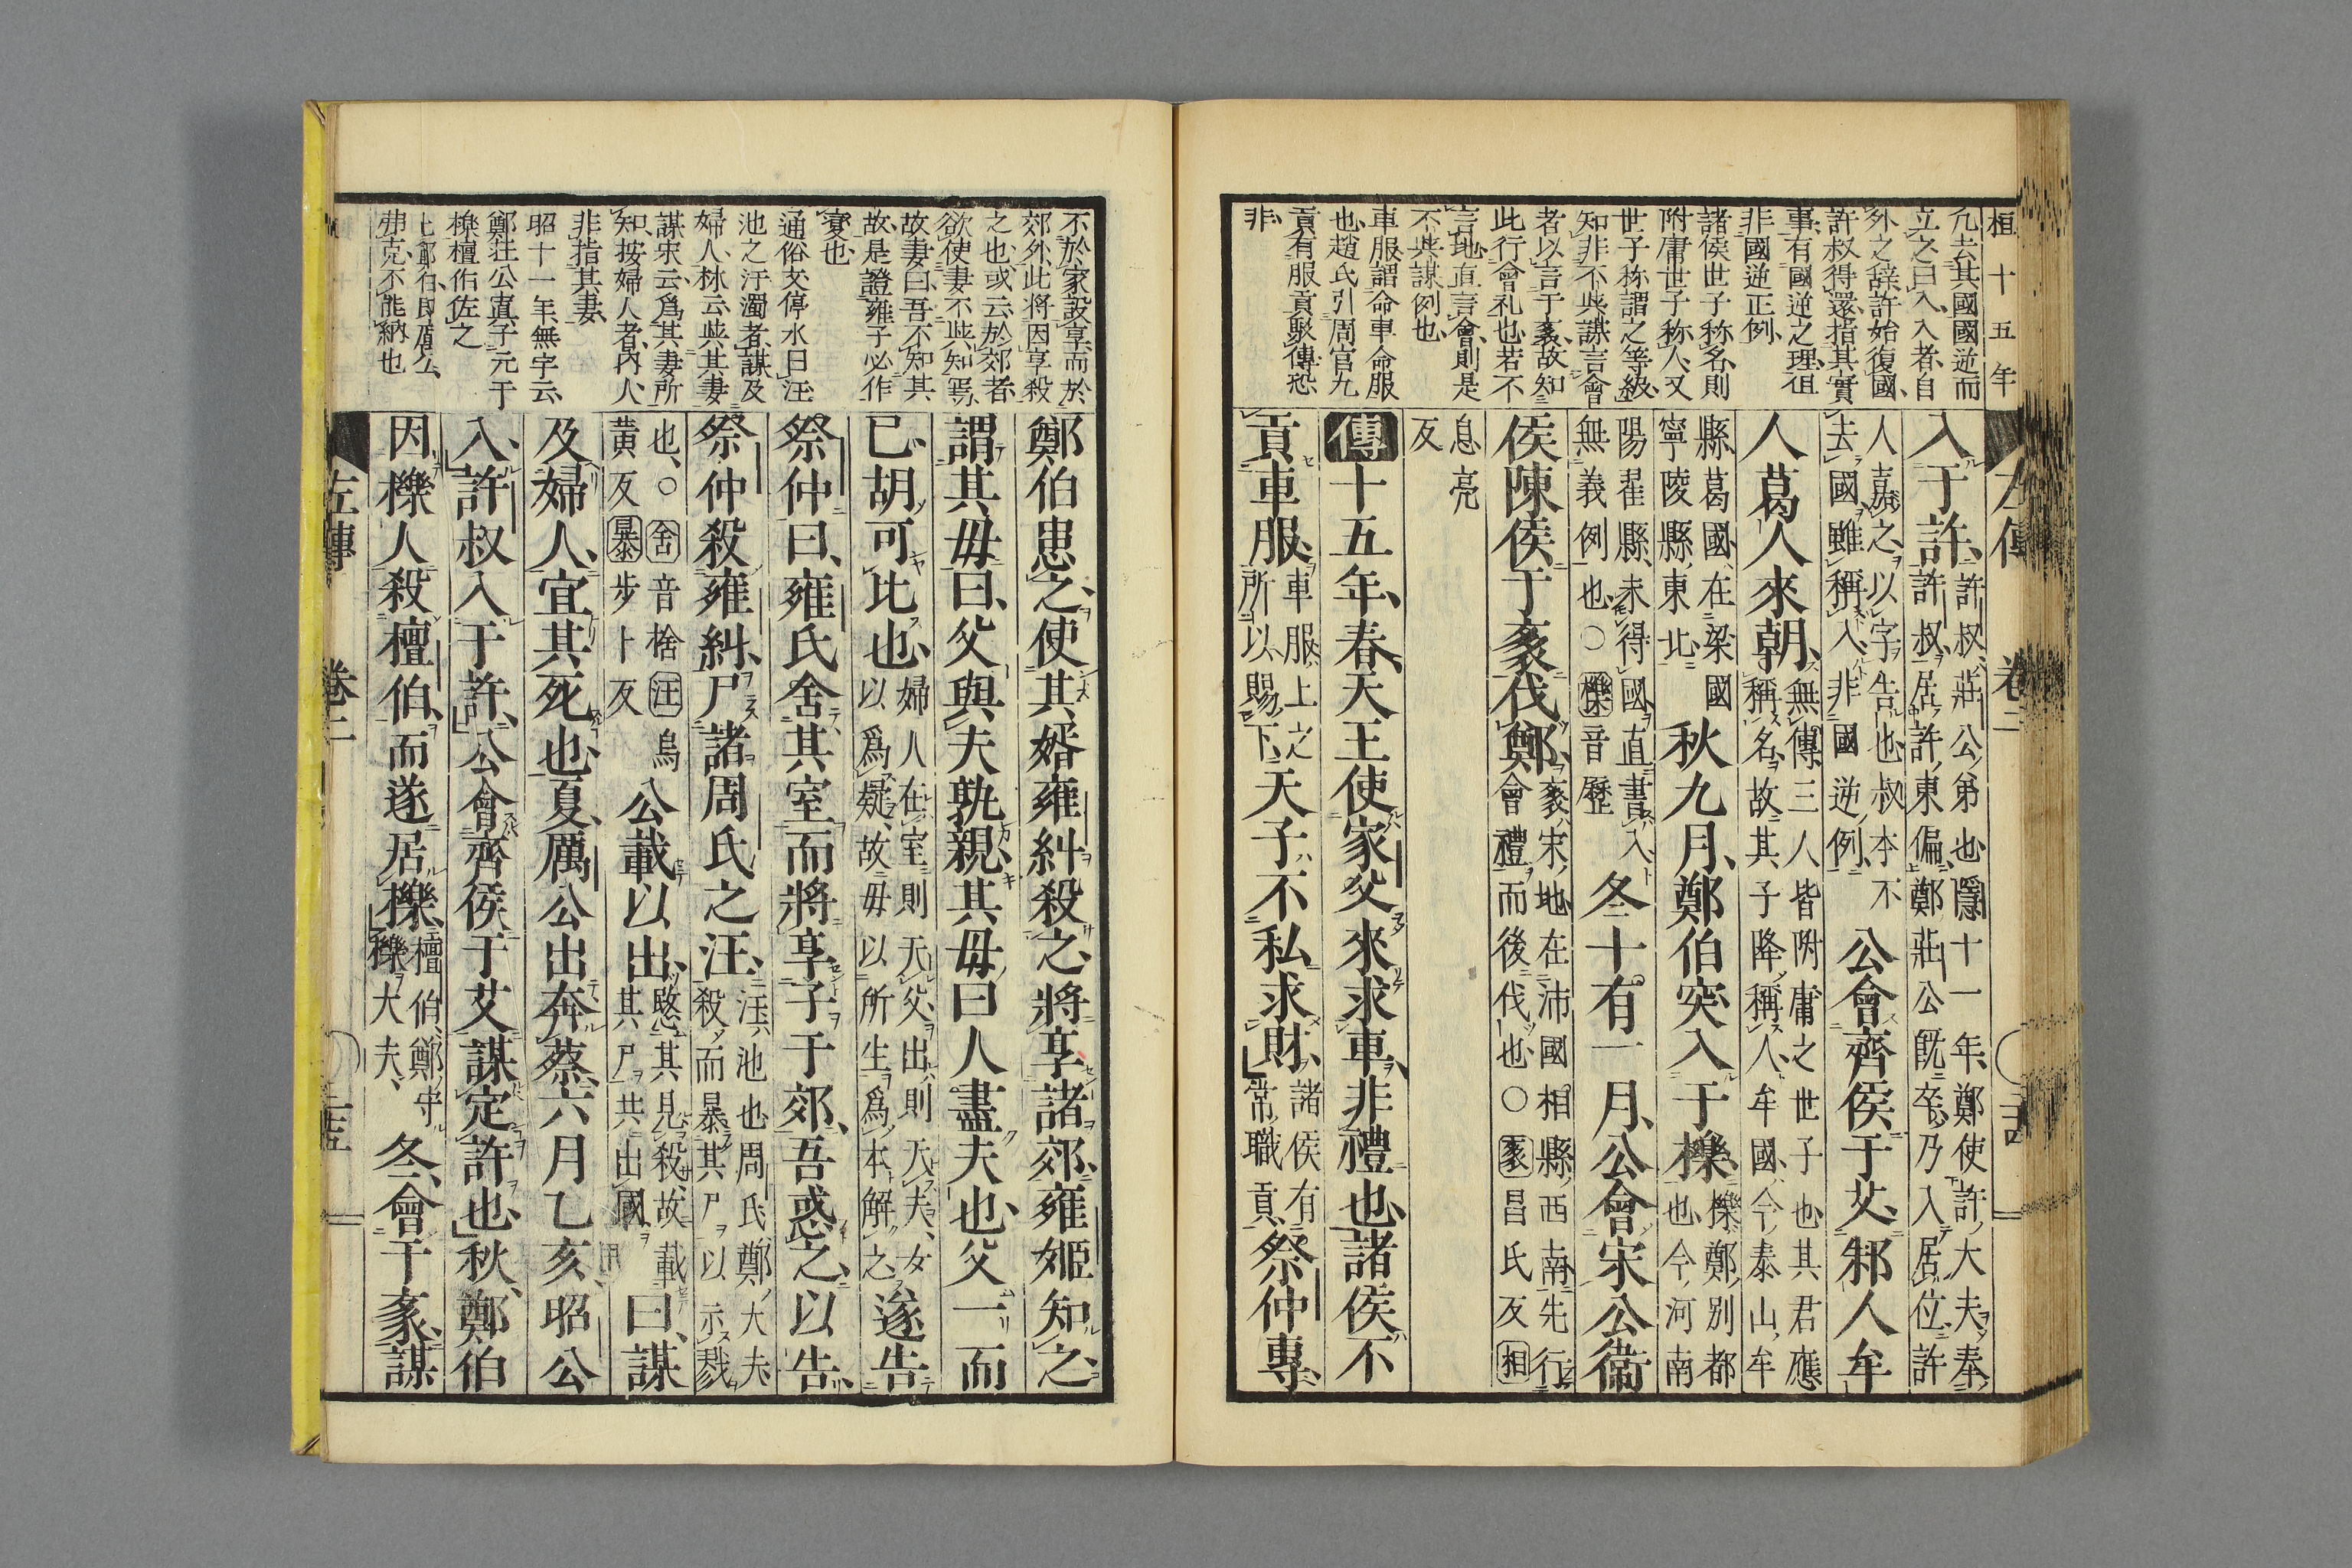 桓十五年
凡去其國國逆而
立之曰入入者自
外之辞許始復國
許叔得還指其實
事有國逆之理徂
非國逆正例
諸侯世子称名則
附庸世子称人又
世子称謂之等級
知非不與謀言會
者以言于袲故知
此行會礼也若不
言地直言會則是
不與謀例也
車服謂命車命服
也趙氏引周官九
貢有服貢駁傳恐
非
左傳 卷二
入于許許叔莊公弟也隱十一年鄭使許大夫奉許叔居許東偏鄭莊公既卒乃入居位許
人嘉之以字告也叔本不去國雖稱入非國逆例公會齊侯于艾邾人牟
人葛人來朝無傳三人皆附庸之世子也其君應稱名故其子降稱人牟國今泰山牟
縣葛國在梁國寧陵縣東北秋九月鄭伯突入于櫟櫟鄭別都也今河南
陽翟縣未得國直書入無義例也○櫟音歷冬十有一月公會宋公衞
侯陳侯于袲伐鄭袲宋地在沛國相縣西南先行會禮而後伐也○袲昌氏反相
息亮反
傳十五年春天王使家父來求車非禮也諸侯不
貢車服車服上之所以賜下天子不私求財諸侯有常職貢祭仲專
不於家設享而於
郊外此將因享殺
之也或云於郊者
欲使妻不與知焉
故妻曰吾不知其
故是證雍子必作
變也
通俗文停水曰汪
池之汙濁者謀及
婦人林云與其妻
謀宋云爲其妻所
知按婦人者内人
非指其妻
昭十一年無宇云
鄭莊公寘子元于
櫟檀伯佐之
弗克不能納也
鄭伯患之使其婿雍糾殺之將享諸郊雍姬知之
謂其毋曰父與夫孰親其毋曰人盡夫也父一而
已胡可比也婦人在室則天父出則天夫女以爲疑故毋以所生爲本解之遂告
祭仲曰雍氏舍其室而將享子于郊吾惑之以告
祭仲殺雍糾尸諸周氏之汪汪池也周氏鄭大夫殺而暴其尸以示戮
也○舍音捨汪烏黄反暴步卜反公載以出愍其見殺故載其尸共出國曰謀
及婦人宜其死也夏厲公出奔蔡六月乙亥昭公
入許叔入于許公會齊侯于艾謀定許也秋鄭伯
因櫟人殺檀伯而遂居櫟檀伯鄭守櫟大夫冬會于袲謀
左傳 卷二